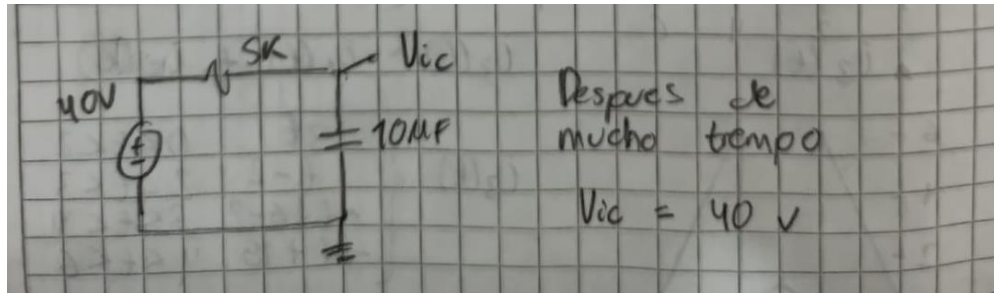 5K
Vic
40V
10MF
Despues de
mucho tiempo
Vic = 40 v